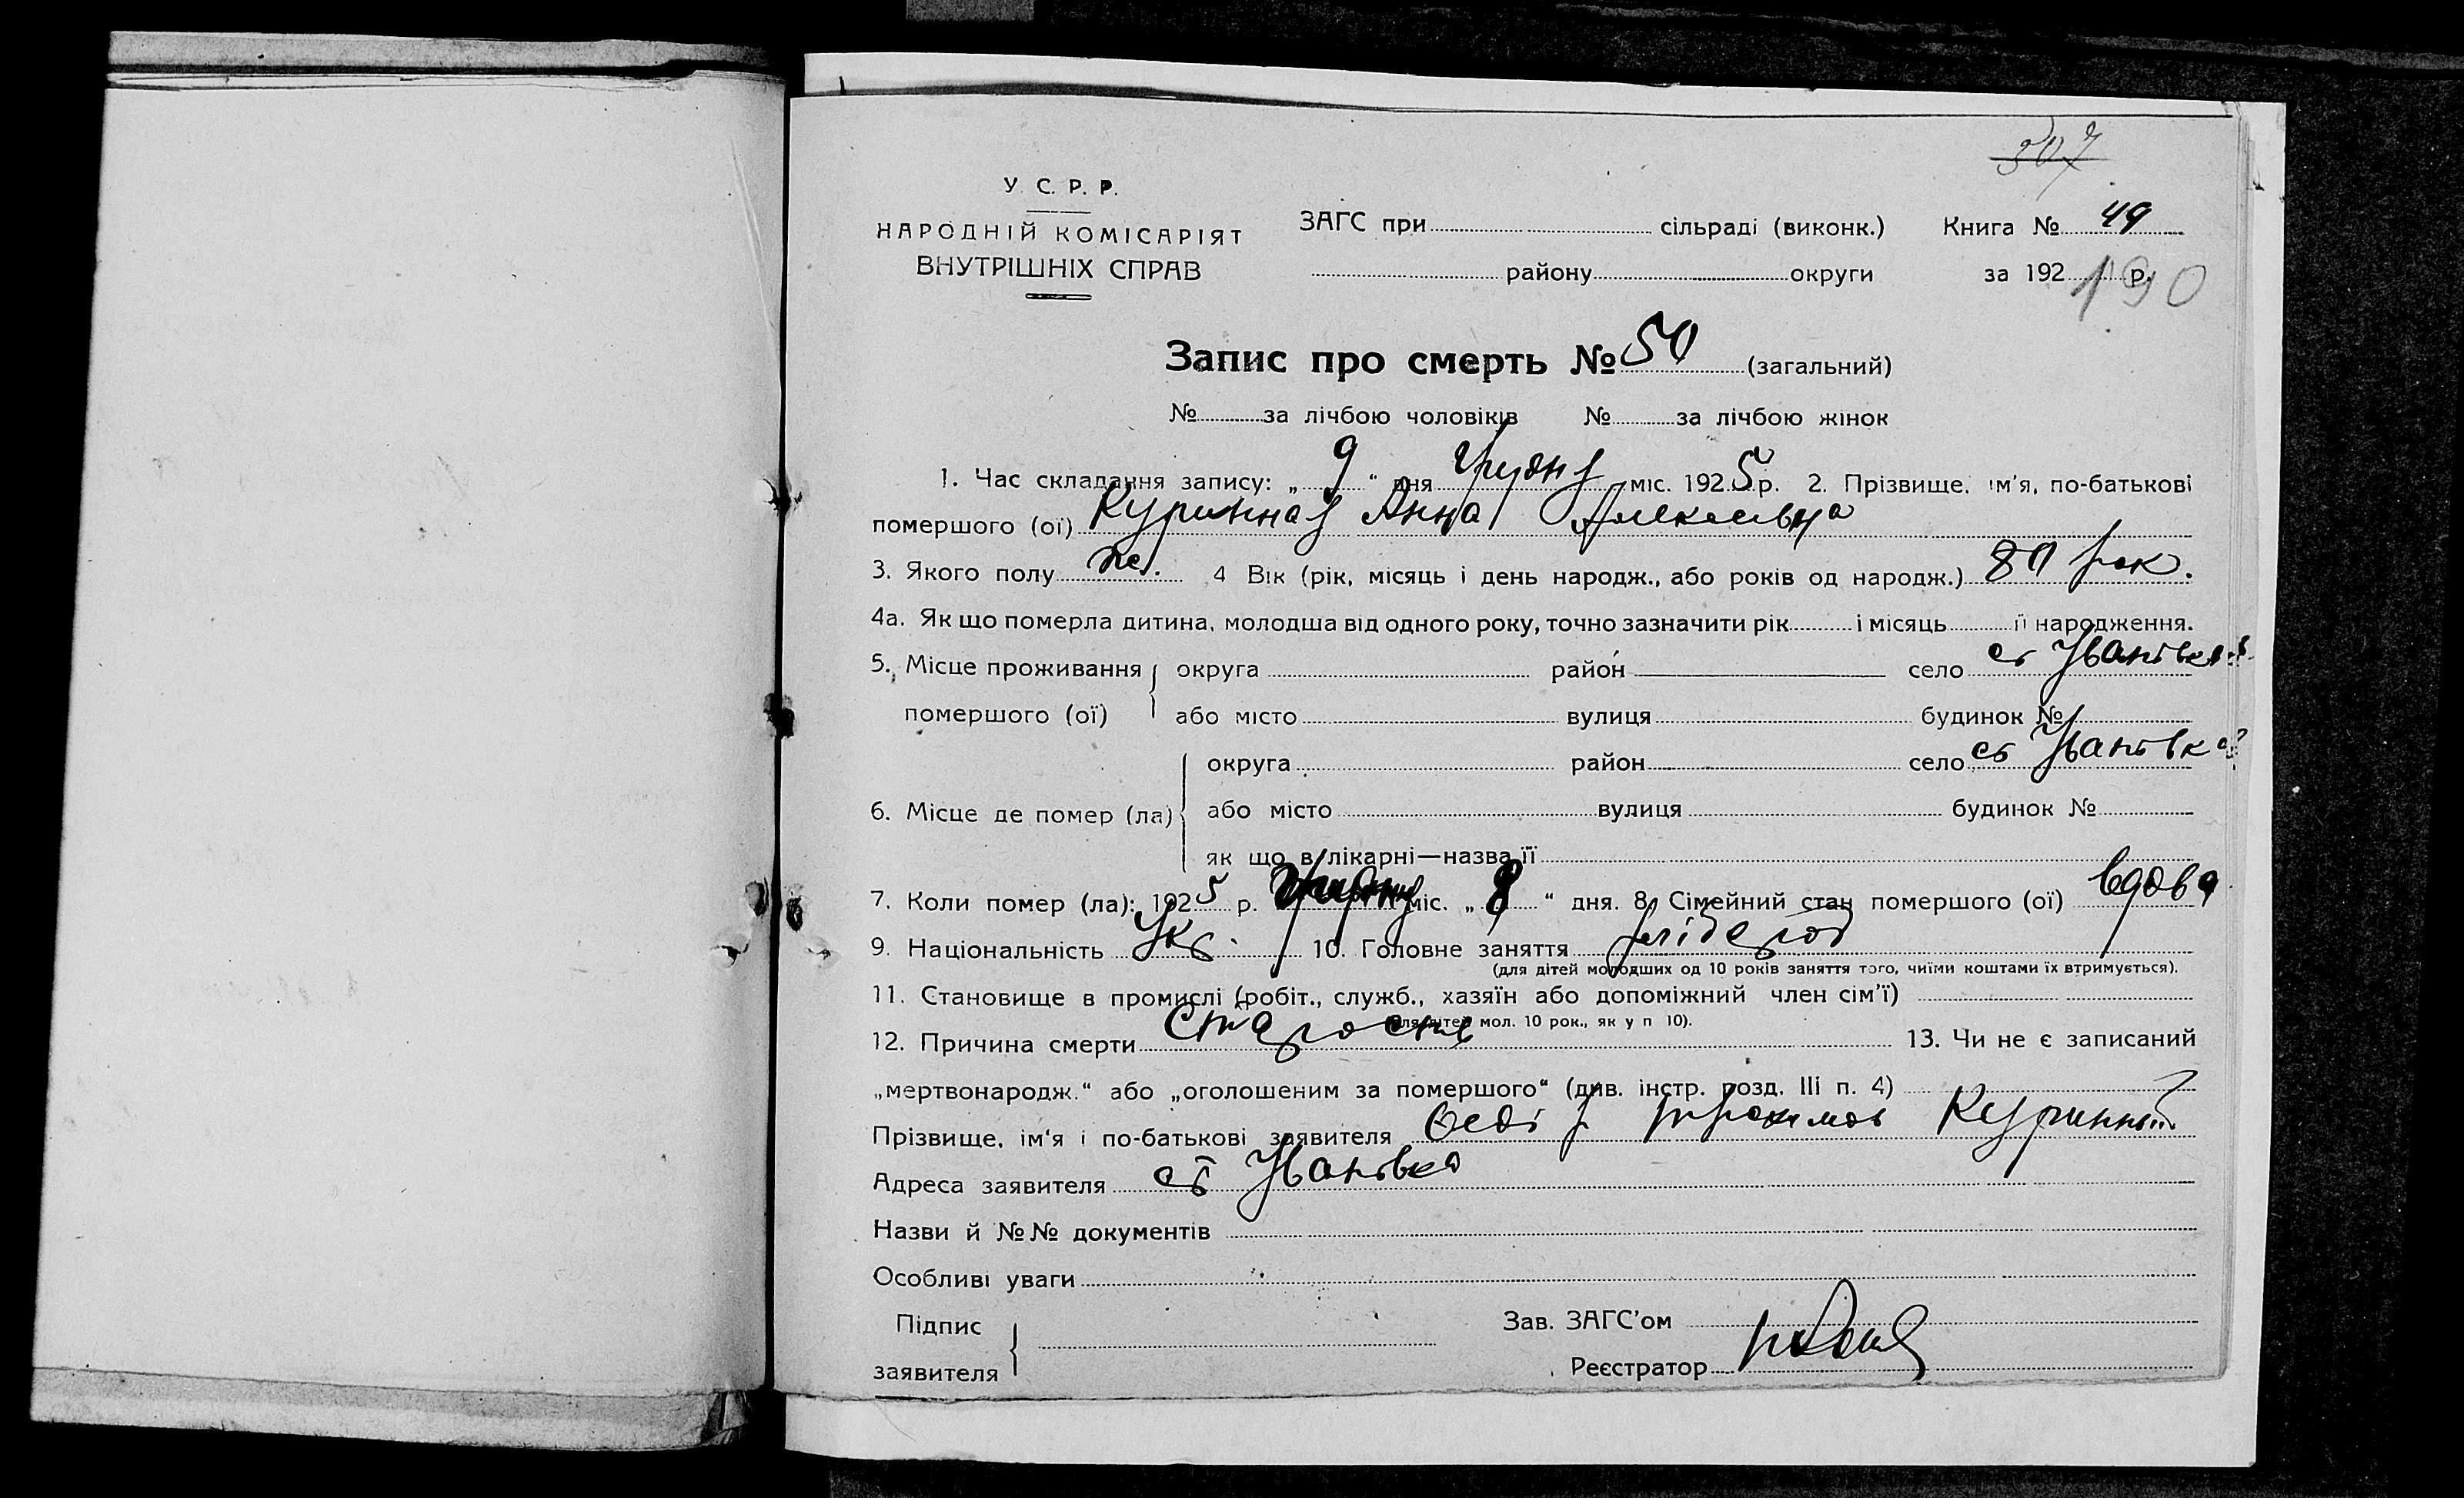 307
У. С. Р. Р.
НАРОДНІЙ КОМІСАРІЯТ
ВНУТРІШНІХ СПРАВ
ЗАГС при сільраді (виконк.) Книга № 49
району округи за 192 р.
190
Запис про смерть № 50 (загальний)
№ за лічбою чоловіків № за лічбою жінок
1. Час складання запису: „ 9 “ дня Грудня міс. 1925 р. 2. Прізвище, ім'я, по-батькові
помершого (ої) Куринная Анна Алексеевна
3. Якого полу же. 4 Вік (рік, місяць і день народж., або років од народж.) 80 рок.
4а. Як що померла дитина, молодша від одного року, точно зазначити рік і місяць її народження.
5. Місце проживання округа район село Іванівка
помершого (ої) або місто вулиця будинок №
округа район село Іванівка
6. Місце де помер (ла) або місто вулиця будинок №
як що в лікарні—назва її
7. Коли помер (ла): 1925 р. Грудня міс. „ 8 “ дня. 8. Сімейний стан помершого (ої) вдова
9. Національність Укр. 10. Головне заняття хлібороб
(для дітей молодших од 10 років заняття того, чиїми коштами їх втримується).
11. Становище в промислі (робіт., служб., хазяїн або допоміжний член сім'ї)
(для дітей мол. 10 рок., як у п 10).
12. Причина смерти Старость 13. Чи не є записаний
„мертвонародж.“ або „оголошеним за помершого“ (див. інстр. розд. III п. 4)
Прізвище, ім'я і по-батькові заявителя Куринный
Адреса заявителя Іванівка
Назви й №№ документів
Особливі уваги
Підпис Зав. ЗАГС'ом
заявителя Реєстратор